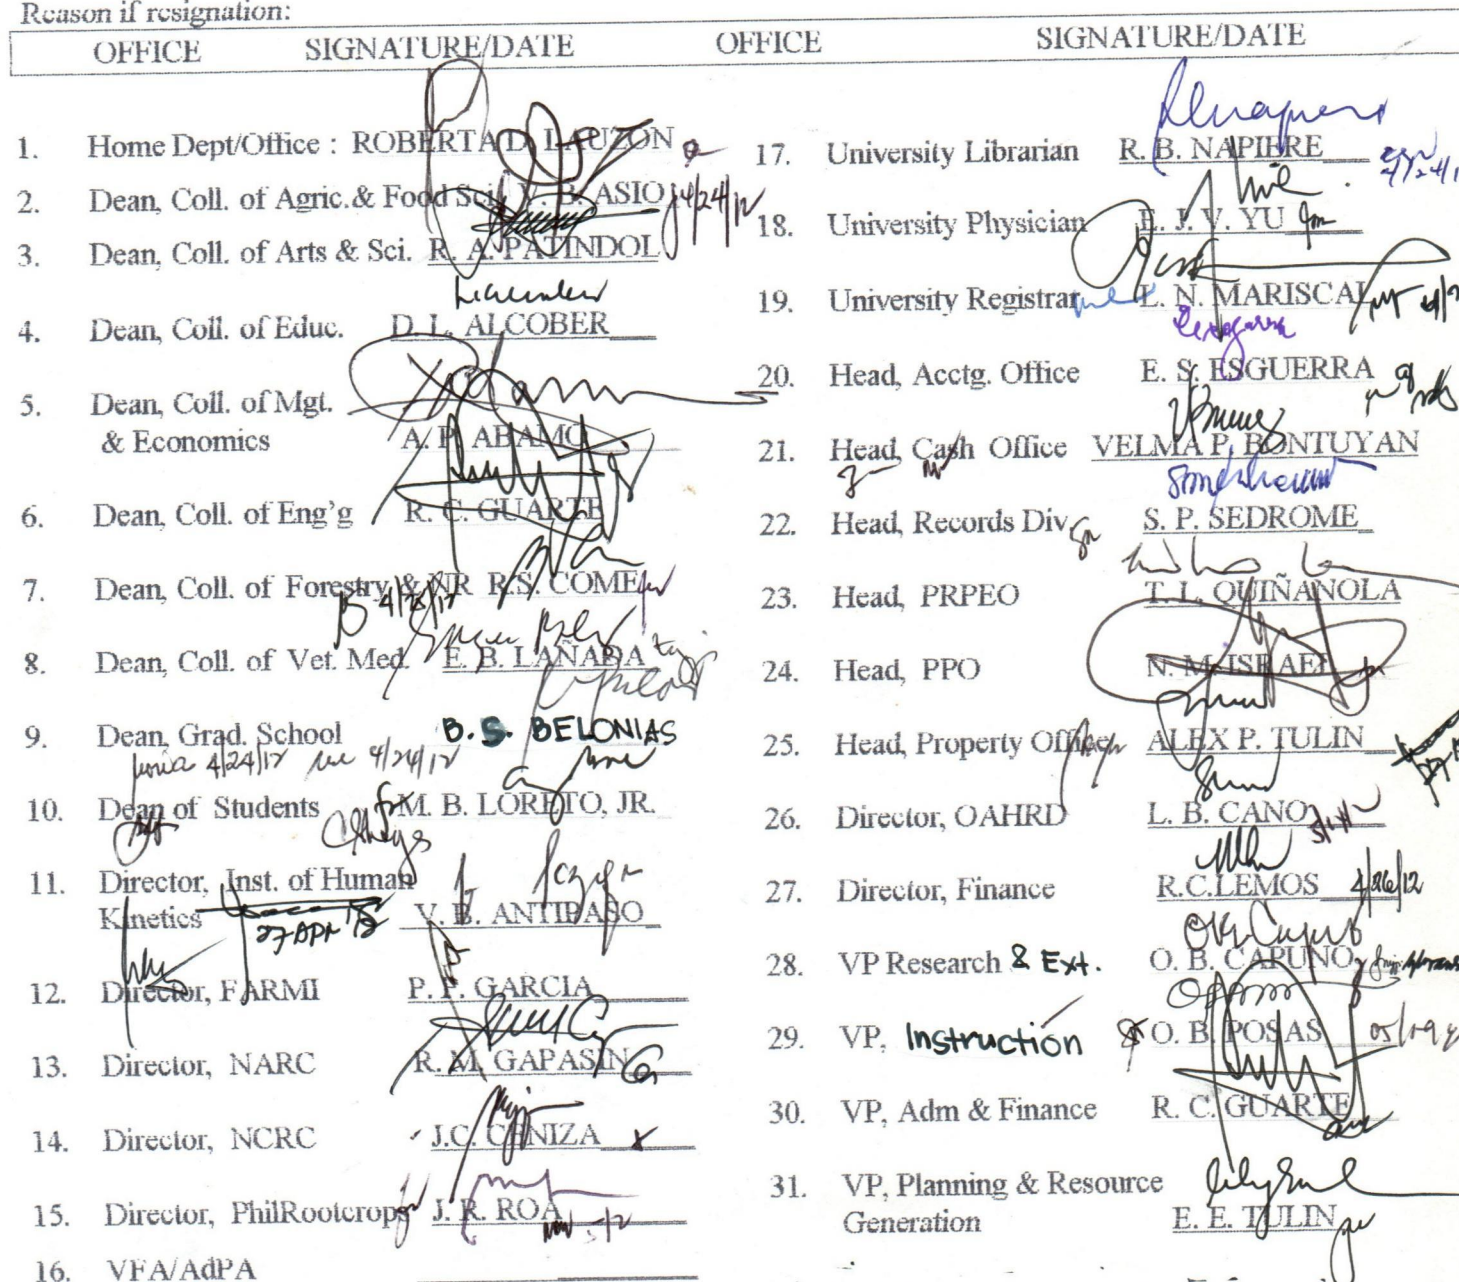 Reason if resignation:
OFFICE SIGNATURE/DATE OFFICE SIGNATURE/DATE
1. Home Dept/Office : ROBERTA D. LAUZON
2. Dean, Coll. of Agric.& Food Sci. V. B. ASIO 4/24/12
3. Dean, Coll. of Arts & Sci. R. A. PATINDOL
4. Dean, Coll. of Educ. D. L. ALCOBER
5. Dean, Coll. of Mgt.
& Economics A. P. ABAMO
6. Dean, Coll. of Eng'g R. C. GUARTE
7. Dean, Coll. of Forestry & NR R.S. COME
8. Dean, Coll. of Vet. Med. E. B. LAÑADA
9. Dean, Grad. School B. S. BELONIAS
4/24/12 4/24/12
10. Dean of Students for M. B. LORETO, JR.
11. Director, Inst. of Human
Kinetics V. B. ANTIPASO
27 APR 12
12. Director, FARMI P. P. GARCIA
13. Director, NARC R. M. GAPASIN
14. Director, NCRC J.C. CENIZA
15. Director, PhilRootcrops J. R. ROA
16. VFA/AdPA
17. University Librarian R. B. NAPIERE
18. University Physician E. J. V. YU
19. University Registrar L. N. MARISCAL
20. Head, Acctg. Office E. S. ESGUERRA
21. Head, Cash Office VELMA P. BONTUYAN
22. Head, Records Div. S. P. SEDROME
23. Head, PRPEO T. L. QUIÑANOLA
24. Head, PPO N. M. ISRAEL
25. Head, Property Office ALEX P. TULIN
26. Director, OAHRD L. B. CANO
27. Director, Finance R.C.LEMOS 4/26/12
28. VP Research & Ext. O. B. CAPUNO
29. VP, Instruction O. B. POSAS
30. VP, Adm & Finance R. C. GUARTE
31. VP, Planning & Resource
Generation E. E. TULIN